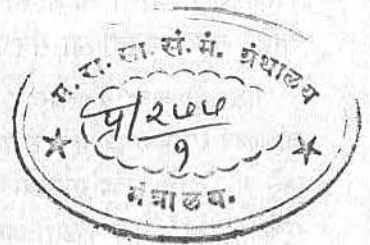 म. रा. सा. सं. मं. ग्रंथालय
प्रा/२७५
१
मंत्रालय.